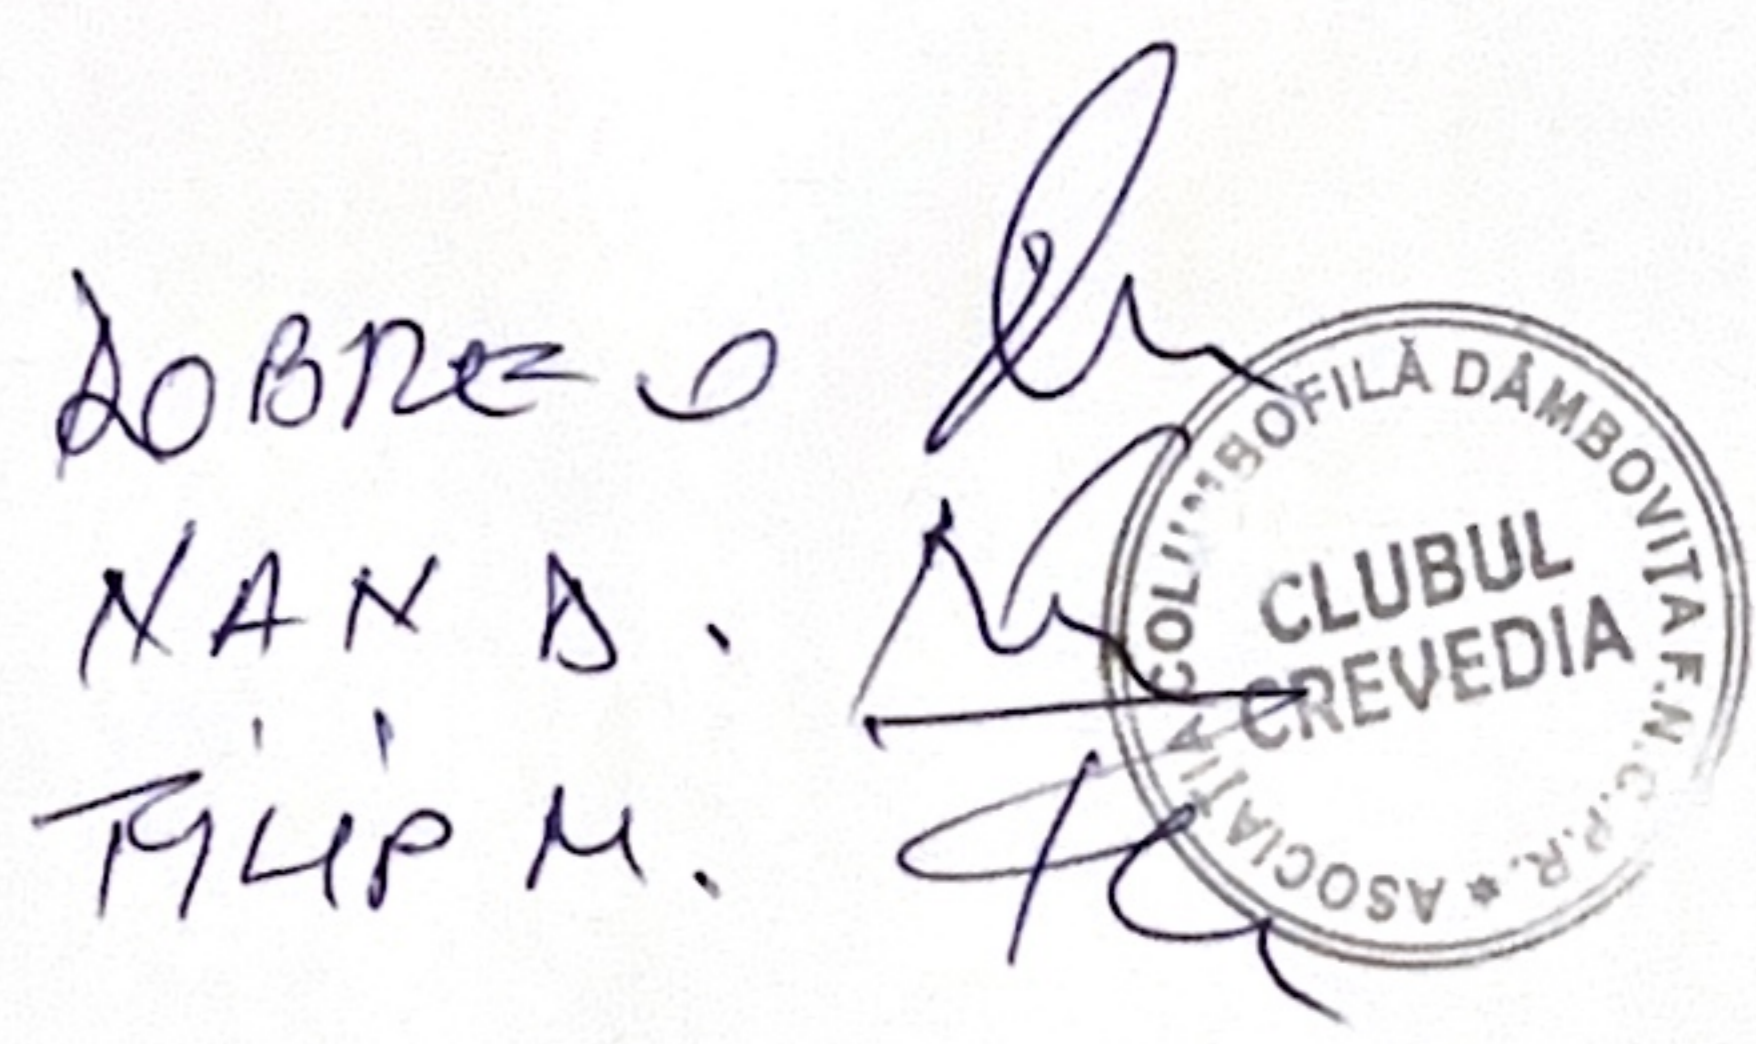 DOBRE O
NAN D.
FILIP M.
ASOCIAȚIA COLUMBOFILĂ DÂMBOVIȚA F.N.C.P.R. *
CLUBUL
CREVEDIA